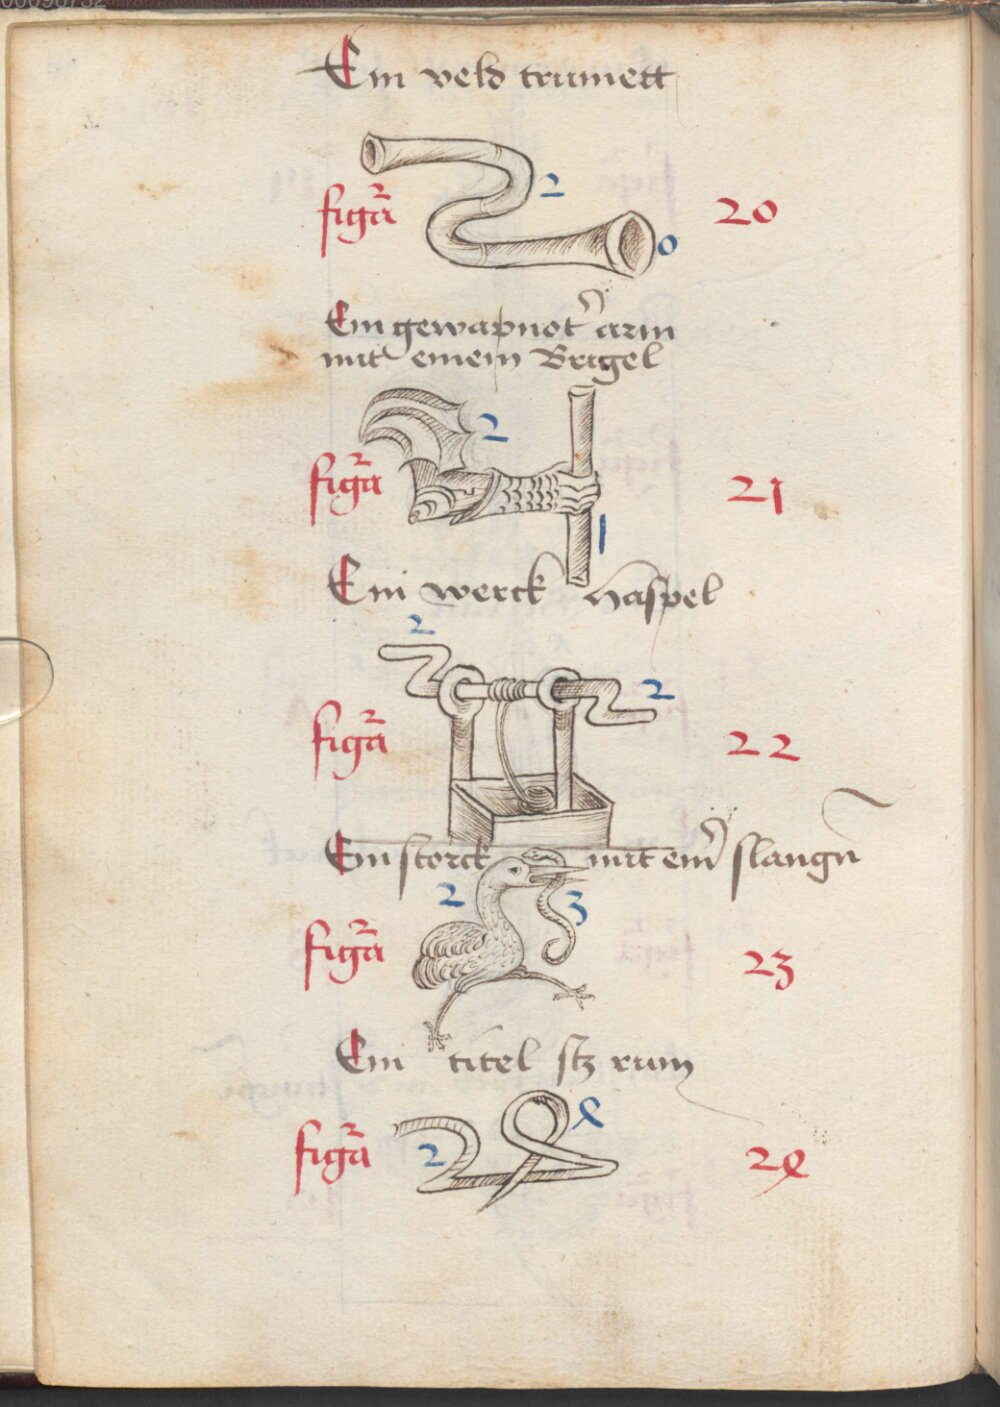 Ein veld trumett
2
figᷓa 20
0
Ein gewapnot arm
mit einem Brigel
2
figᷓa 21
1
Ein werck haspel
2
2
figᷓa 22
Ein storck mit eim slangn
2 3
figᷓa 23
Ein titel
4
figᷓa 2 24